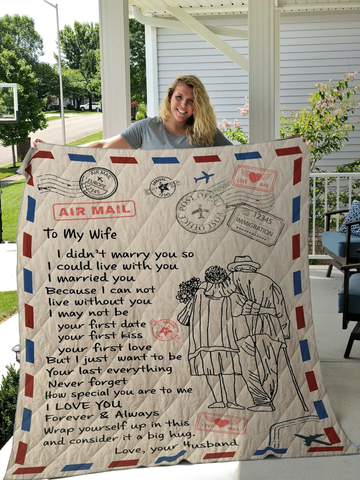 AIR MAIL
To My Wife
I didn't marry you so
I could live with you
I married you
Because I can not
live without you
I may not be
your first date
your first kiss
your first love
But I just want to be
Your last everything
Never forget
How special you are to me
I LOVE YOU
Forever & Always
Wrap yourself up in this
and consider it a big hug.
Love, your Husband
POST OFFICE
12345
IMMIGRATION